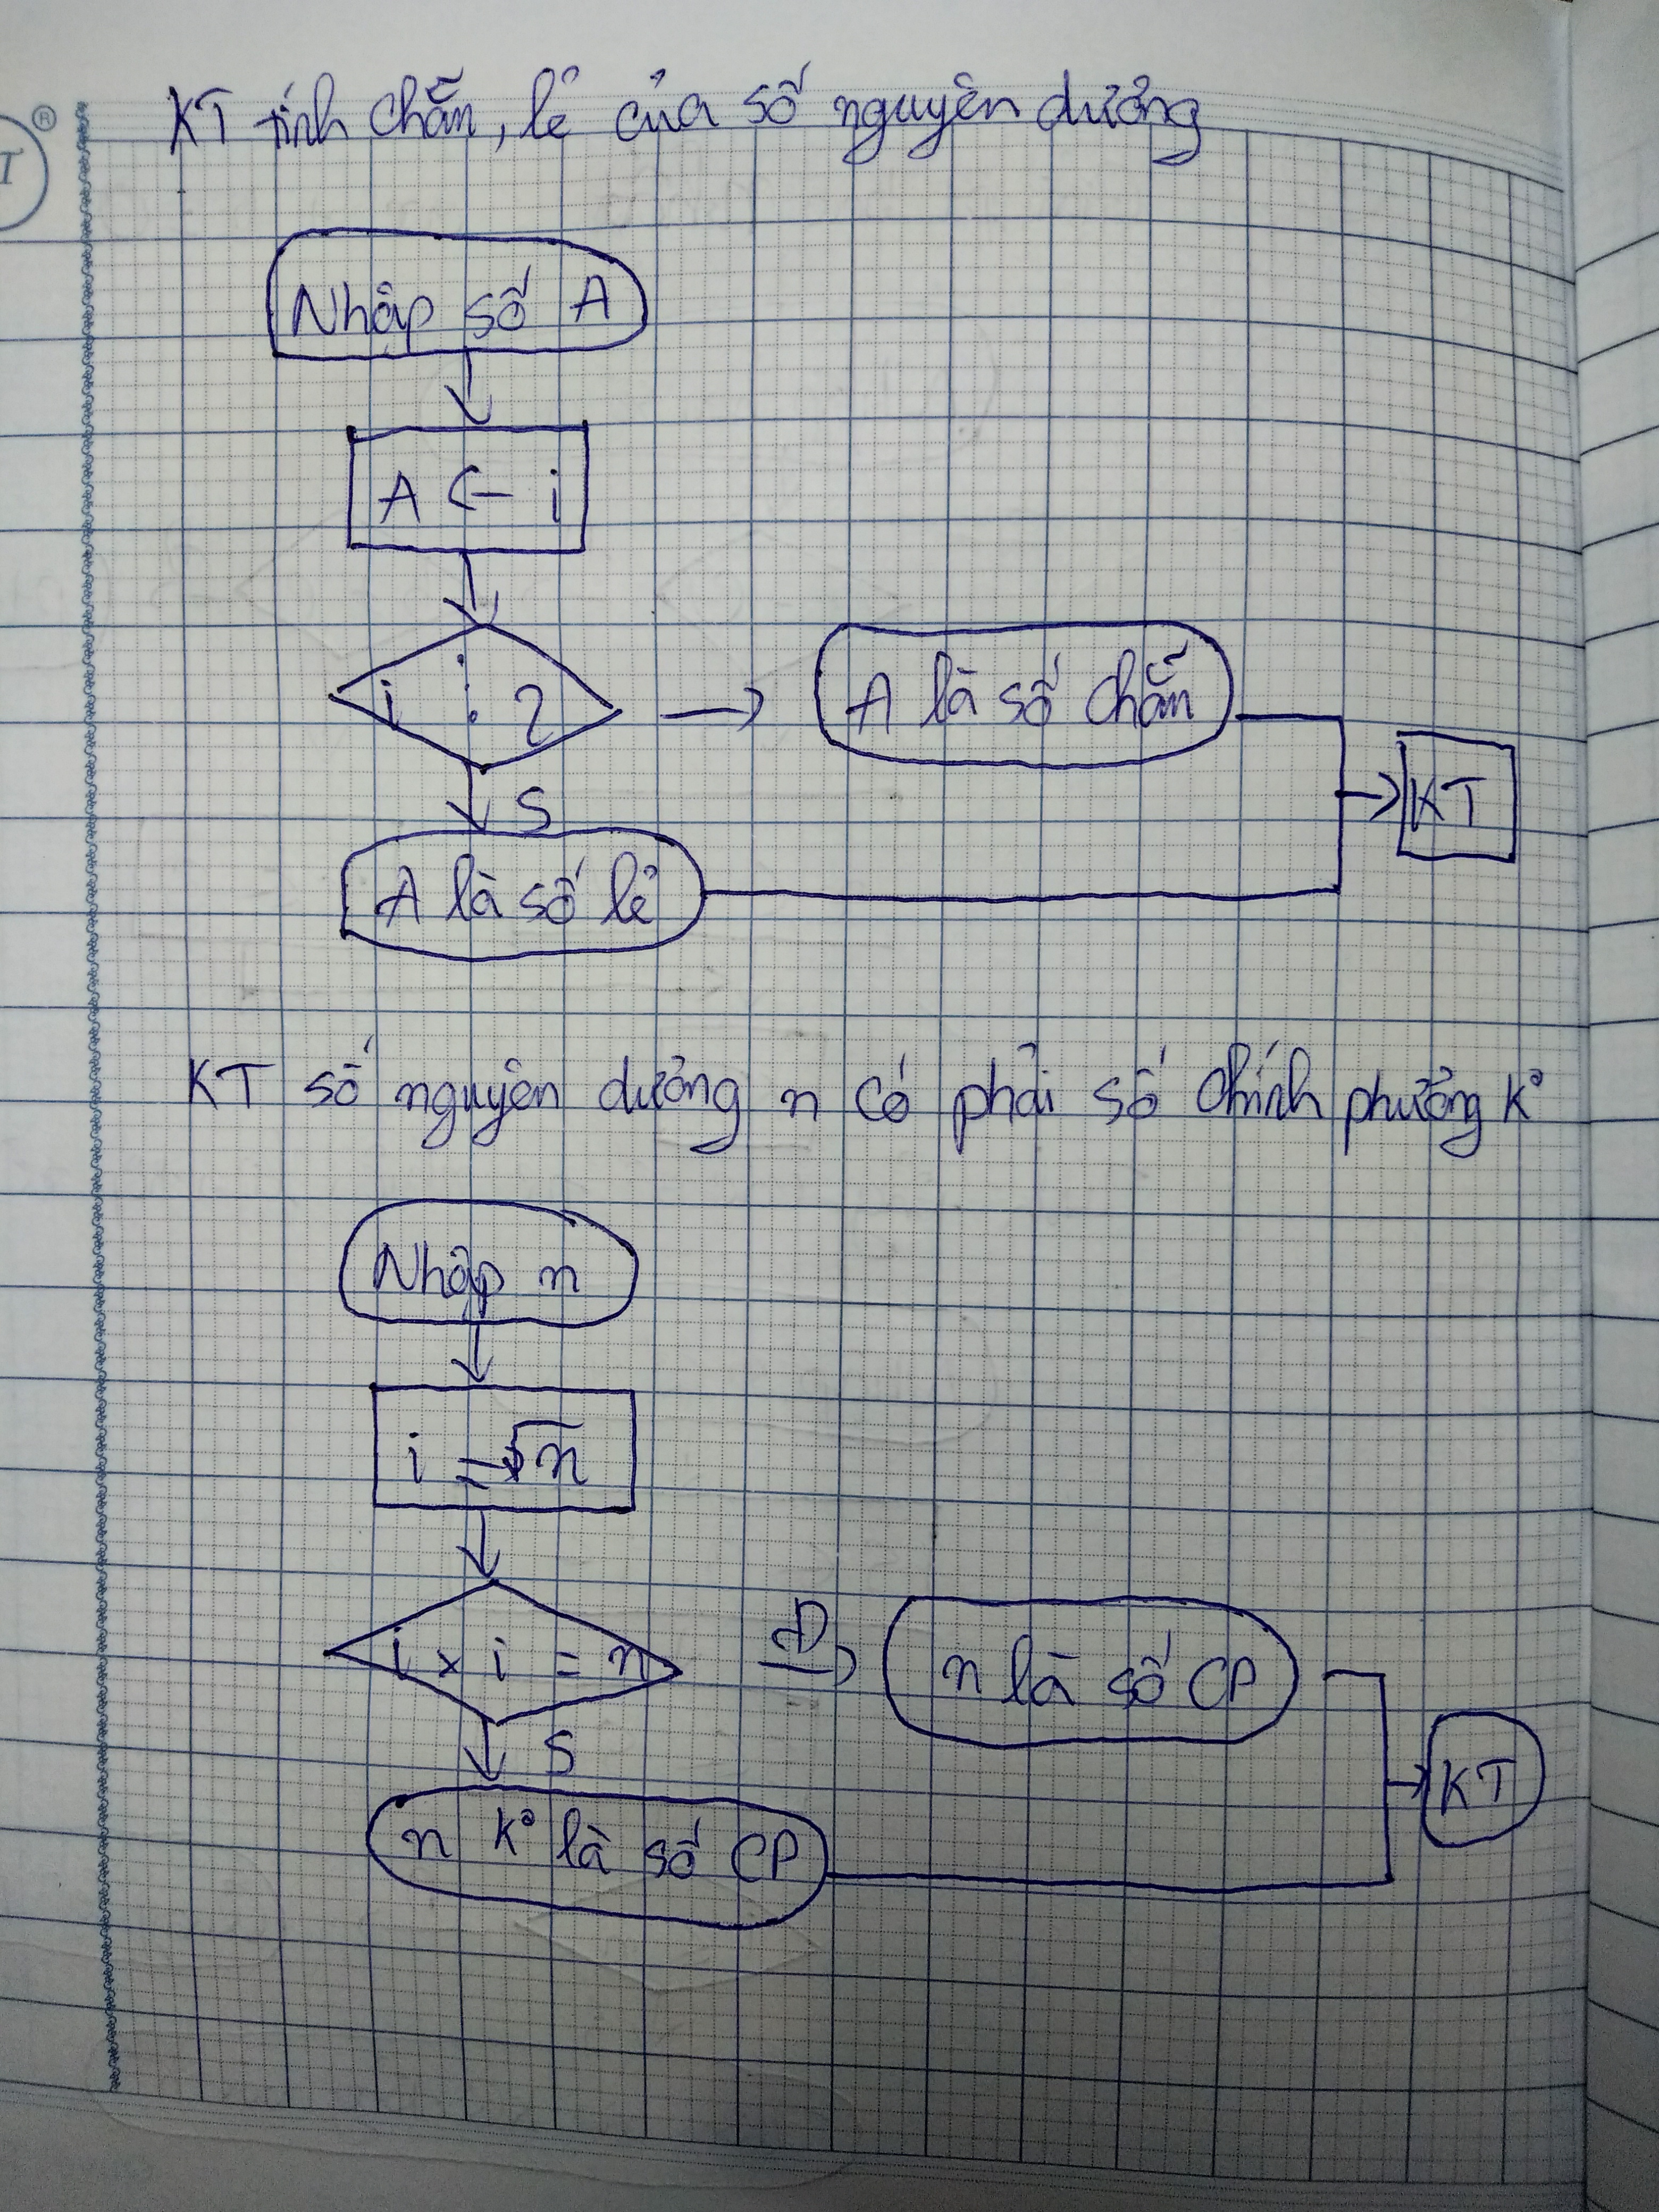 KT tính chẵn, lẻ của số nguyên dương
Nhập số A
A ← i
i ⋮ 2
A là số chẵn
KT
S
A là số lẻ
KT số nguyên dương n có phải số chính phương k°
Nhập n
i = √n
i × i = n
Đ
n là số CP
S
KT
n k° là số CP